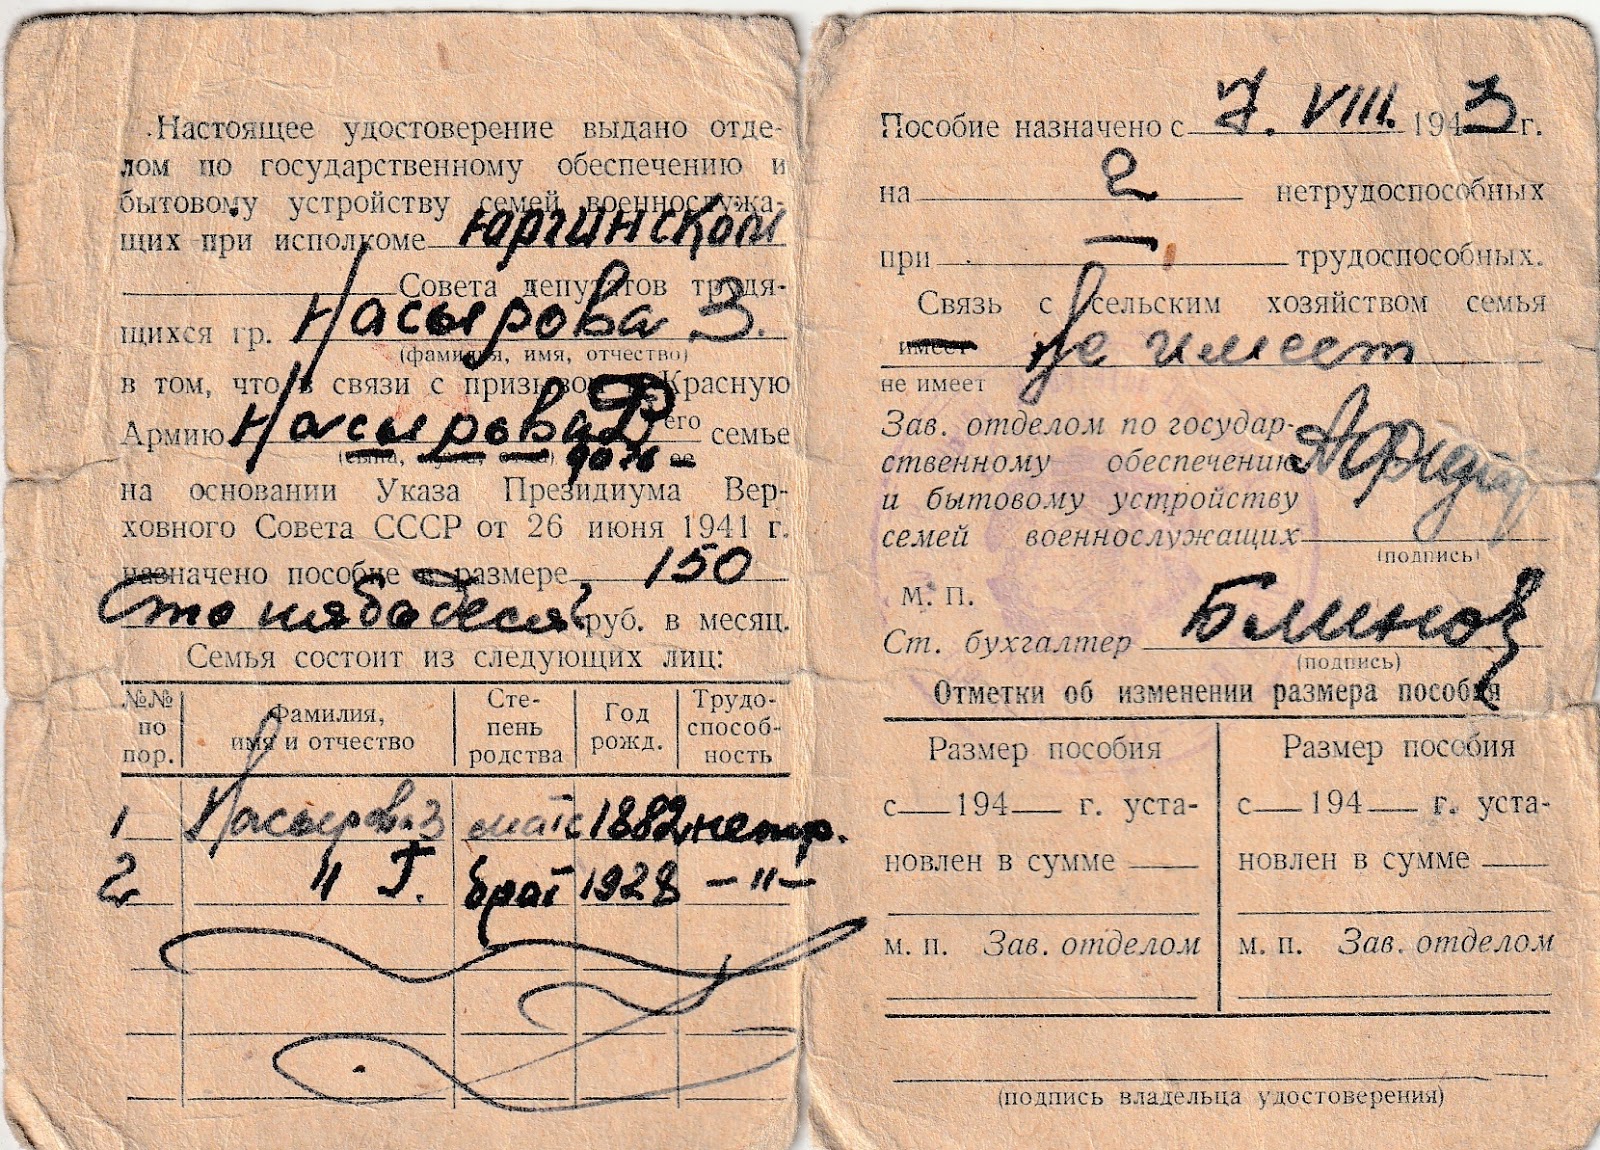 Настоящее удостоверение выдано отде-
лом по государственному обеспечению и
бытовому устройству семей военнослужа-
щих при исполкоме Юргинском
Совета депутатов трудя-
щихся гр. Насырова З.
(фамилия, имя, отчество)
в том, что в связи с призывом в Красную
Армию Насырова Ф его семье
(сына, мужа, отца) дочь ее
на основании Указа Президиума Вер-
ховного Совета СССР от 26 июня 1941 г.
назначено пособие в размере 150
Сто пятьдесят руб. в месяц.
Семья состоит из следующих лиц:
№№ по пор. Фамилия, имя и отчество Сте-пень родства Год рожд. Трудо-способ-ность
1 Насырова З мать 1882 нетр.
2 " Г. брат 1928 -"-
Пособие назначено с 7. VIII. 1943 г.
на 2 нетрудоспособных
при — трудоспособных.
Связь с сельским хозяйством семья
имеет не имеет
не имеет
Зав. отделом по государ-
ственному обеспечению
и бытовому устройству
семей военнослужащих
(подпись)
М. П.
Ст. бухгалтер Блинов
(подпись)
Отметки об изменении размера пособия
Размер пособия Размер пособия
с 194 г. уста- с 194 г. уста-
новлен в сумме новлен в сумме
м. п. Зав. отделом м. п. Зав. отделом
(подпись владельца удостоверения)